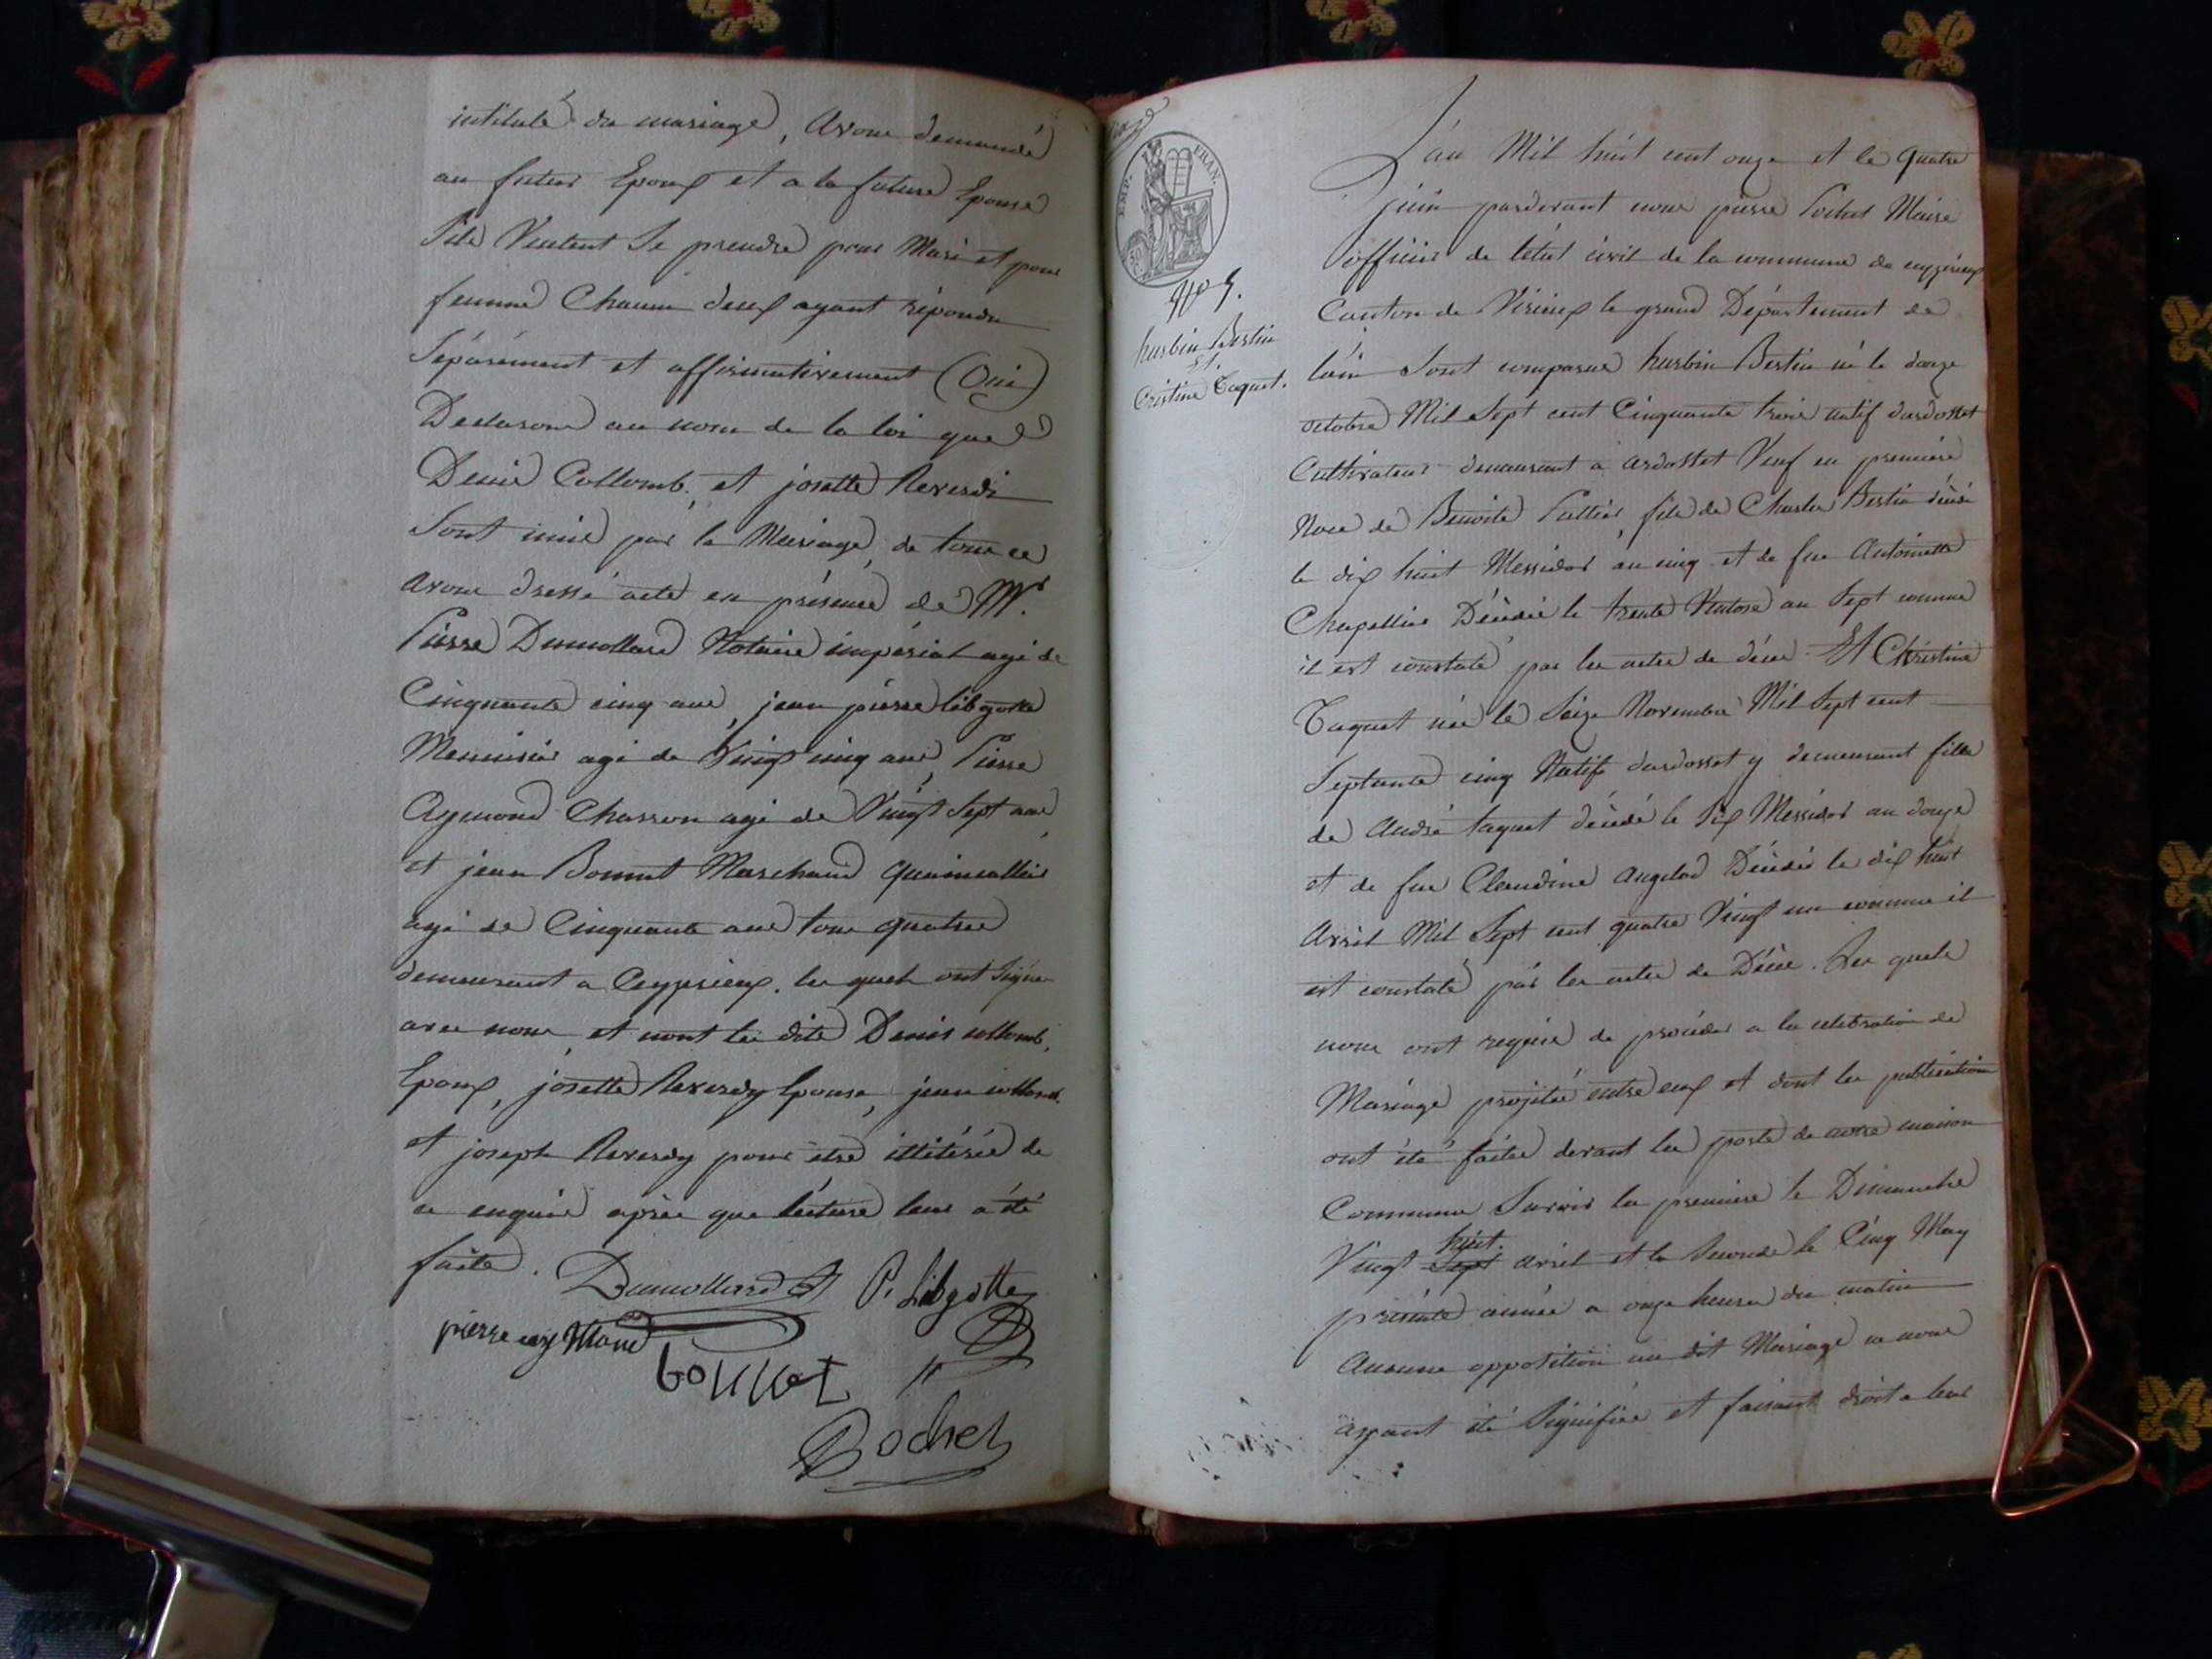 intitulé du mariage, avons demandé
au futur Epoux et a la future Epouse
Sils Veulent Se prendre pour Mari et pour
femme Chacun deux ayant répondu
Séparément et affirmativement (Oui)
Declarons au nom de la loi que
Denis Collomb, et josette Reverdi
Sont unis par le Mariage, de tous ce
avons dressé acte en présence de Mr.
Pierre Dumollard Notaire impérial agé de
Cinquante cinq ans, jean pierre libgotte
Menuisier agé de Vingt cinq ans, Pierre
Aymond Charron agé de Vingt Sept ans,
et jean Bonnet Marchand Quaincallier
agé de Cinquante ans tous quatres
demeurant a Ceyzerieux. les quels ont Signé
avec nous, et nont les dits Denis collomb,
Epoux, josette Reverdy Epouse, jean collomb.
et joseph Reverdy pour être illitérés de
ce enquis après que lécture leur a été
faite.
Dumollard P. Libgotte
pierre aymond
bonnet
Pochet
EMP. FRAN.
No 9.
hurbin Bertin
Et.
Cristine Taquet.
L'an Mil huit cent onze et le Quatre
juin pardevant nous pierre Pochet Maire
officier de létat civil de la commune de ceyzerieux
Canton de Virieux le grand Département de
lain Sont comparus hurbin Bertin né le douze
octobre Mil Sept cent Cinquante trois natif dardosset
Cultivateur demeurant a ardosset Veuf en première
Noce de Benoite Pallier, fils de Charles Bertin décédé
le dix huit Messidor an cinq et de fue Antoinette
Chapellier Décédée le trente Ventose an Sept comme
il est constaté par les actes de décès. Et Christine
Taquet née le Seize Novembre Mil Sept cent
Septante cinq Natife dardosset y demeurant fille
de André taquet décédé le Six Messidor an douze
et de fue Claudine Angelod Décédée le dix huit
Avril Mil Sept cent quatre Vingt un comme il
est constaté par les actes de Décès. Les quels
nous ont requis de procéder a la célébration de
Mariage projetée entre eux et dont les publications
ont été faites devant la porte de notre maison
Commune Savoir la premiere le Dimanche
huit.
Vingt Sept avril et la Seconde le Cinq May
présente année a onze heures du matin
Aucune opposition au dit Mariage ne nous
ayant été Signifiée et faisant droit a leur